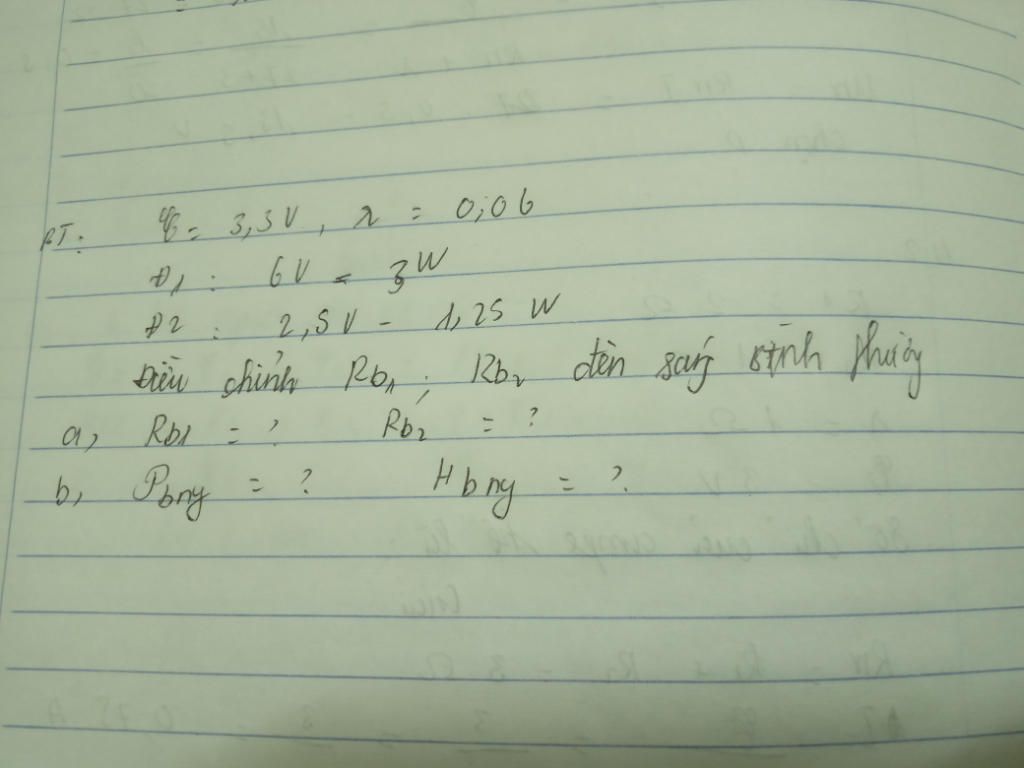 BT: ξ = 3,3V, r = 0,06
Đ1 : 6V - 3W
Đ2 : 2,5V - 1,25 W
Điều chỉnh Rb1 ; Rb2 đèn sáng bình thường
a, Rb1 = ? Rb2 = ?
b, Pbng = ? Hbng = ?